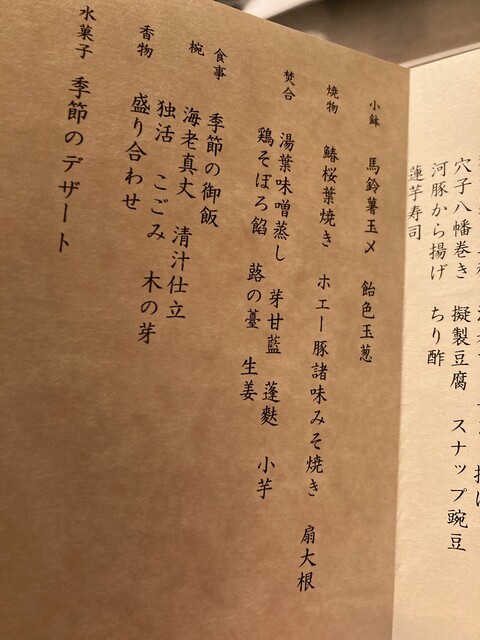 穴子八幡巻き 擬製豆腐 スナップ豌豆
河豚から揚げ ちり酢
蓮芋寿司
小鉢 馬鈴薯玉〆 飴色玉葱
焼物 鰆桜葉焼き ホエー豚諸味みそ焼き 扇大根
焚合 湯葉味噌蒸し 芽甘藍 蓬麩 小芋
鶏そぼろ餡 蕗の薹 生姜
食事 季節の御飯
椀 海老真丈 清汁仕立
独活 こごみ 木の芽
香物 盛り合わせ
水菓子 季節のデザート